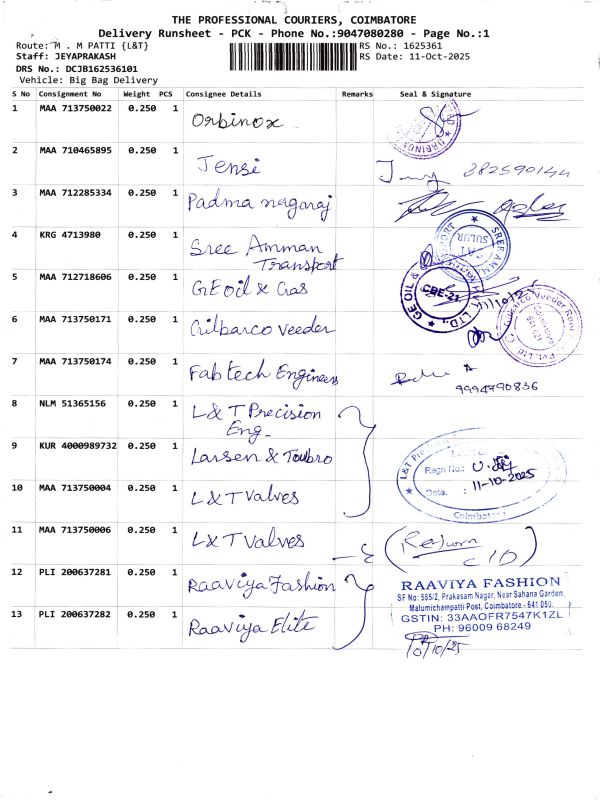 THE PROFESSIONAL COURIERS, COIMBATORE
Delivery Runsheet - PCK - Phone No.:9047080280 - Page No.:1
Route: M . M PATTI {L&T}
RS No.: 1625361
Staff: JEYAPRAKASH
RS Date: 11-Oct-2025
DRS No.: DCJB162536101
Vehicle: Big Bag Delivery
S No Consignment No Weight PCS Consignee Details Remarks Seal & Signature
1 MAA 713750022 0.250 1 Orbinox
ORBINOX
2 MAA 710465895 0.250 1 Jensi
3 MAA 712285334 0.250 1 Padma nagaraj
4 KRG 4713980 0.250 1 Sree Amman
Transport
SREE AMMAN
SULUR
5 MAA 712718606 0.250 1 GE oil & Gas
GE OIL &
CBE-21
LTD.
6 MAA 713750171 0.250 1 Gilbarco Veeder
Gilbarco Veeder Root
Pvt. Ltd
7 MAA 713750174 0.250 1 Fabtech Engineers
9994790836
8 NLM 51365156 0.250 1 L& T Precision
Eng.
9 KUR 4000989732 0.250 1 Larsen & Toubro
L&T
Regn No.:
Date. : 11-10-2025
Coimbatore
10 MAA 713750004 0.250 1 L& T Valves
11 MAA 713750006 0.250 1 L& T Valves
(Return
12 PLI 200637281 0.250 1 Raaviya Fashion
RAAVIYA FASHION
SF No: 585/2, Prakasam Nagar, Near Sahana Garden,
Malumichampatti Post, Coimbatore - 641 050.
GSTIN: 33AAOFR7547K1ZL
PH: 96009 68249
13 PLI 200637282 0.250 1 Raaviya Elite